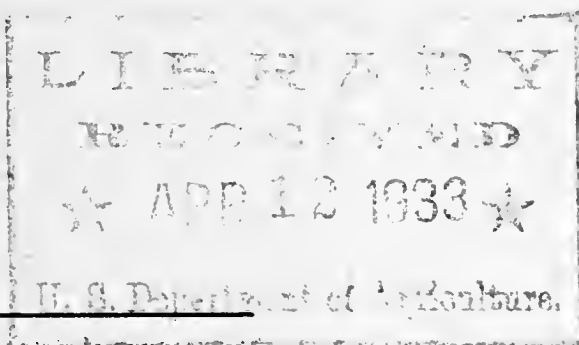 LIBRARY
RECEIVED
☆ APR 12 1933 ☆
U. S. Department of Agriculture.